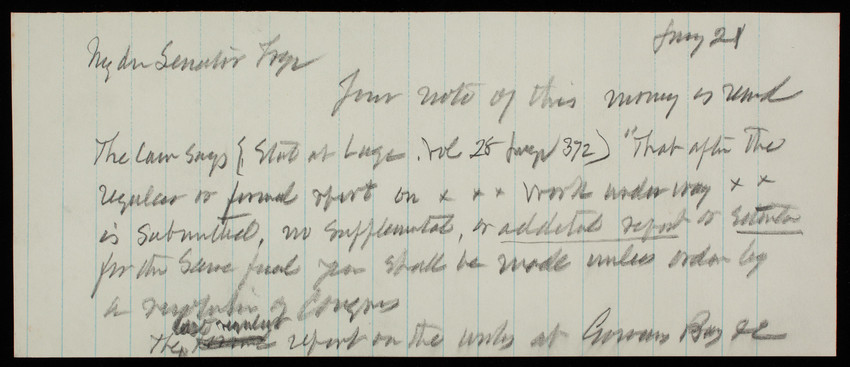 Jany 21
My dr Senator Frye
Your note of this morning is recd
The law says (Stat at Large. Vol 28 page 372) "That after the
regular or formal report on x x x work under way x x
is submitted, no supplemental, or additnl report or estimate
for the same fiscal year shall be made unless ordered by
a resolution of Congress
last regular
The report on the works at Bay &c